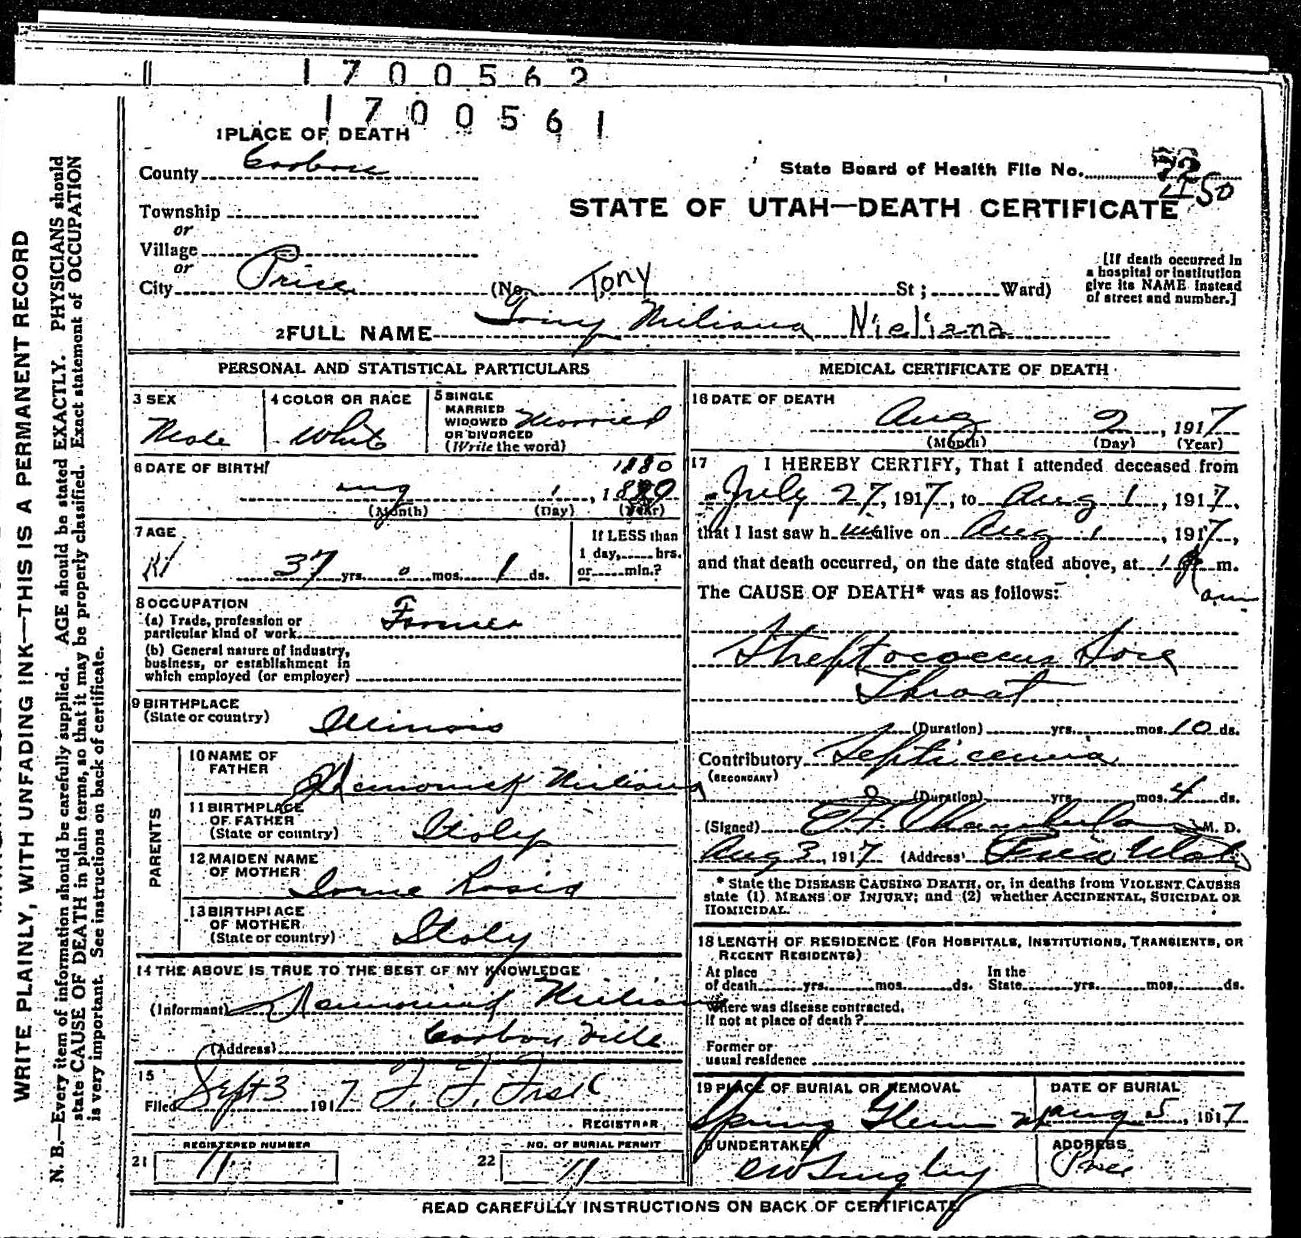 1700562
1700561
1 PLACE OF DEATH
County Carbon
State Board of Health File No. 50
Township
or
STATE OF UTAH—DEATH CERTIFICATE
Village
or
City Price (No. Tony St; Ward)
[If death occurred in
a hospital or institution
give its NAME instead
of street and number.]
2 FULL NAME Tony Niliana Nieliana
PERSONAL AND STATISTICAL PARTICULARS
3 SEX Male
4 COLOR OR RACE White
5 SINGLE
MARRIED
WIDOWED
OR DIVORCED
(Write the word) Married
6 DATE OF BIRTH 1880
Aug 1, 18
(Month) (Day) (Year)
7 AGE
37 yrs. 0 mos. 1 ds.
If LESS than
1 day, hrs.
or min.?
8 OCCUPATION
(a) Trade, profession or
particular kind of work Farmer
(b) General nature of industry,
business, or establishment in
which employed (or employer)
9 BIRTHPLACE
(State or country) Illinois
PARENTS
10 NAME OF
FATHER Niliana
11 BIRTHPLACE
OF FATHER
(State or country) Italy
12 MAIDEN NAME
OF MOTHER
13 BIRTHPLACE
OF MOTHER
(State or country) Italy
14 THE ABOVE IS TRUE TO THE BEST OF MY KNOWLEDGE
(Informant) Niliana
(Address) Carbonville
15
Filed Sept 3 1917
REGISTRAR
REGISTERED NUMBER
21 11
NO. OF BURIAL PERMIT
22 11
MEDICAL CERTIFICATE OF DEATH
16 DATE OF DEATH
Aug 2, 1917
(Month) (Day) (Year)
17 I HEREBY CERTIFY, That I attended deceased from
July 27, 1917, to Aug 1, 1917,
that I last saw him alive on Aug 1, 1917,
and that death occurred, on the date stated above, at 1 m.
am
The CAUSE OF DEATH* was as follows:
Streptococcus Sore
Throat
(Duration) yrs. mos. 10 ds.
Contributory Septicemia
(SECONDARY)
(Duration) yrs. mos. 4 ds.
(Signed) Chamberlain M. D.
Aug 3, 1917 (Address) Price Utah
* State the DISEASE CAUSING DEATH, or, in deaths from VIOLENT CAUSES
state (1) MEANS OF INJURY; and (2) whether ACCIDENTAL, SUICIDAL OR
HOMICIDAL.
18 LENGTH OF RESIDENCE (FOR HOSPITALS, INSTITUTIONS, TRANSIENTS, OR
RECENT RESIDENTS)
At place
of death yrs. mos. ds.
In the
State yrs. mos. ds.
Where was disease contracted,
If not at place of death?
Former or
usual residence
19 PLACE OF BURIAL OR REMOVAL
Spring Glenn
DATE OF BURIAL
Aug 5, 1917
UNDERTAKER
ADDRESS
Price
READ CAREFULLY INSTRUCTIONS ON BACK OF CERTIFICATE
WRITE PLAINLY, WITH UNFADING INK—THIS IS A PERMANENT RECORD
N. B.—Every item of information should be carefully supplied. AGE should be stated EXACTLY. PHYSICIANS should
state CAUSE OF DEATH in plain terms, so that it may be properly classified. Exact statement of OCCUPATION
is very important. See instructions on back of certificate.